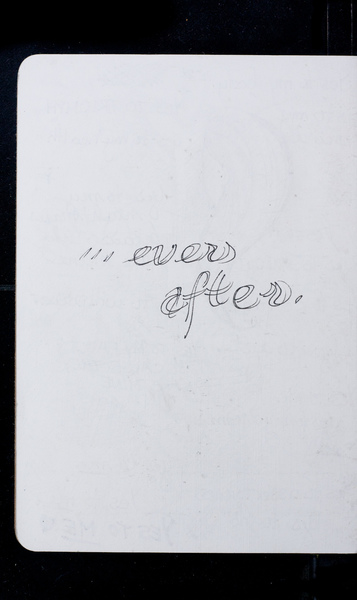 ... ever
after.